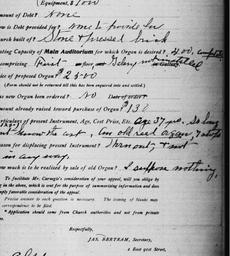 (Equipment, $1000
Amount of Debt? None
is Debt provided for? none to provide for
Church built of? Stone & pressed brick
Seating Capacity of Main Auditorium for which Organ is desired? 400,
comprising First floor, Gallery
Price of proposed Organ? $2500
(Form should not be returned till this has been inquired into and stated.)
new Organ been ordered? No Date of
Amount already raised toward purchase of Organ? $13
Particulars of present Instrument, Age, Cost Price, Etc. age 37 yrs. So long
the cost, an old reed organ, 7 stops
Reason for displacing present Instrument? It is worn out & not
in any way.
will be realized by sale of old Organ? I suppose nothing.
To facilitate Mr. Carnegie's consideration of your appeal, will you oblige by
in the above, which is sent for the purpose of summarizing information and does
imply favorable consideration of the appeal.
Precise answer to each question is necessary. The issuing of blanks may
correspondence to be filed.
Application should come from Church authorities and not from private
Respectfully,
JAS. BERTRAM, Secretary,
2 East 91st Street,